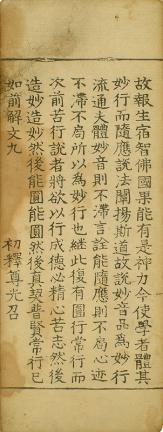 故報生宿智佛國果能有是神力令使學者體其
妙行而隨應説法闡揚斯道故說妙音品為妙行
流通夫體妙音則不滯言詮能隨應則不局心迹
不滯不局所以為妙行也繼此復有圓行常行而
次前苦行說者將欲以行成德必精心苦志然後
造妙造妙然後能圓能圓然後真契普賢常行已
如前解文九　初釋尊光召